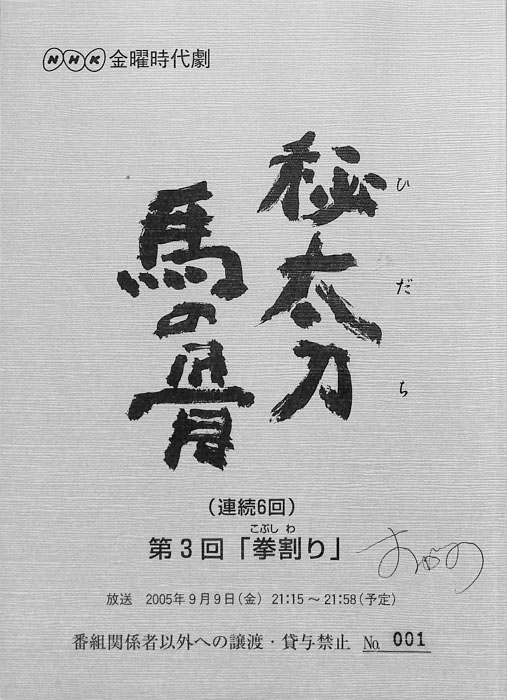 NHK 金曜時代劇
秘太刀
ひだち
馬の骨
（連続6回）
こぶし わ
第3回「拳割り」
放送 2005年9月9日(金) 21:15～21:58(予定)
番組関係者以外への譲渡・貸与禁止 No. 001